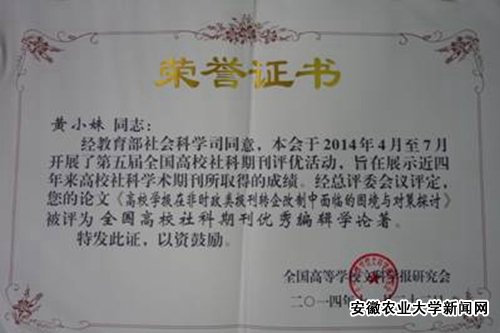 荣誉证书
黄小妹 同志：
经教育部社会科学司同意，本会于2014年4月至7月
开展了第五届全国高校社科期刊评优活动，旨在展示近四
年来高校社科学术期刊所取得的成绩。经总评委会议评定，
您的论文《高校学报在非时政类报刊转企改制中面临的困境与对策探讨》
被评为 全国高校社科期刊优秀编辑学论著。
特发此证，以资鼓励。
全国高等学校文科学报研究会
二〇一四年
安徽农业大学新闻网